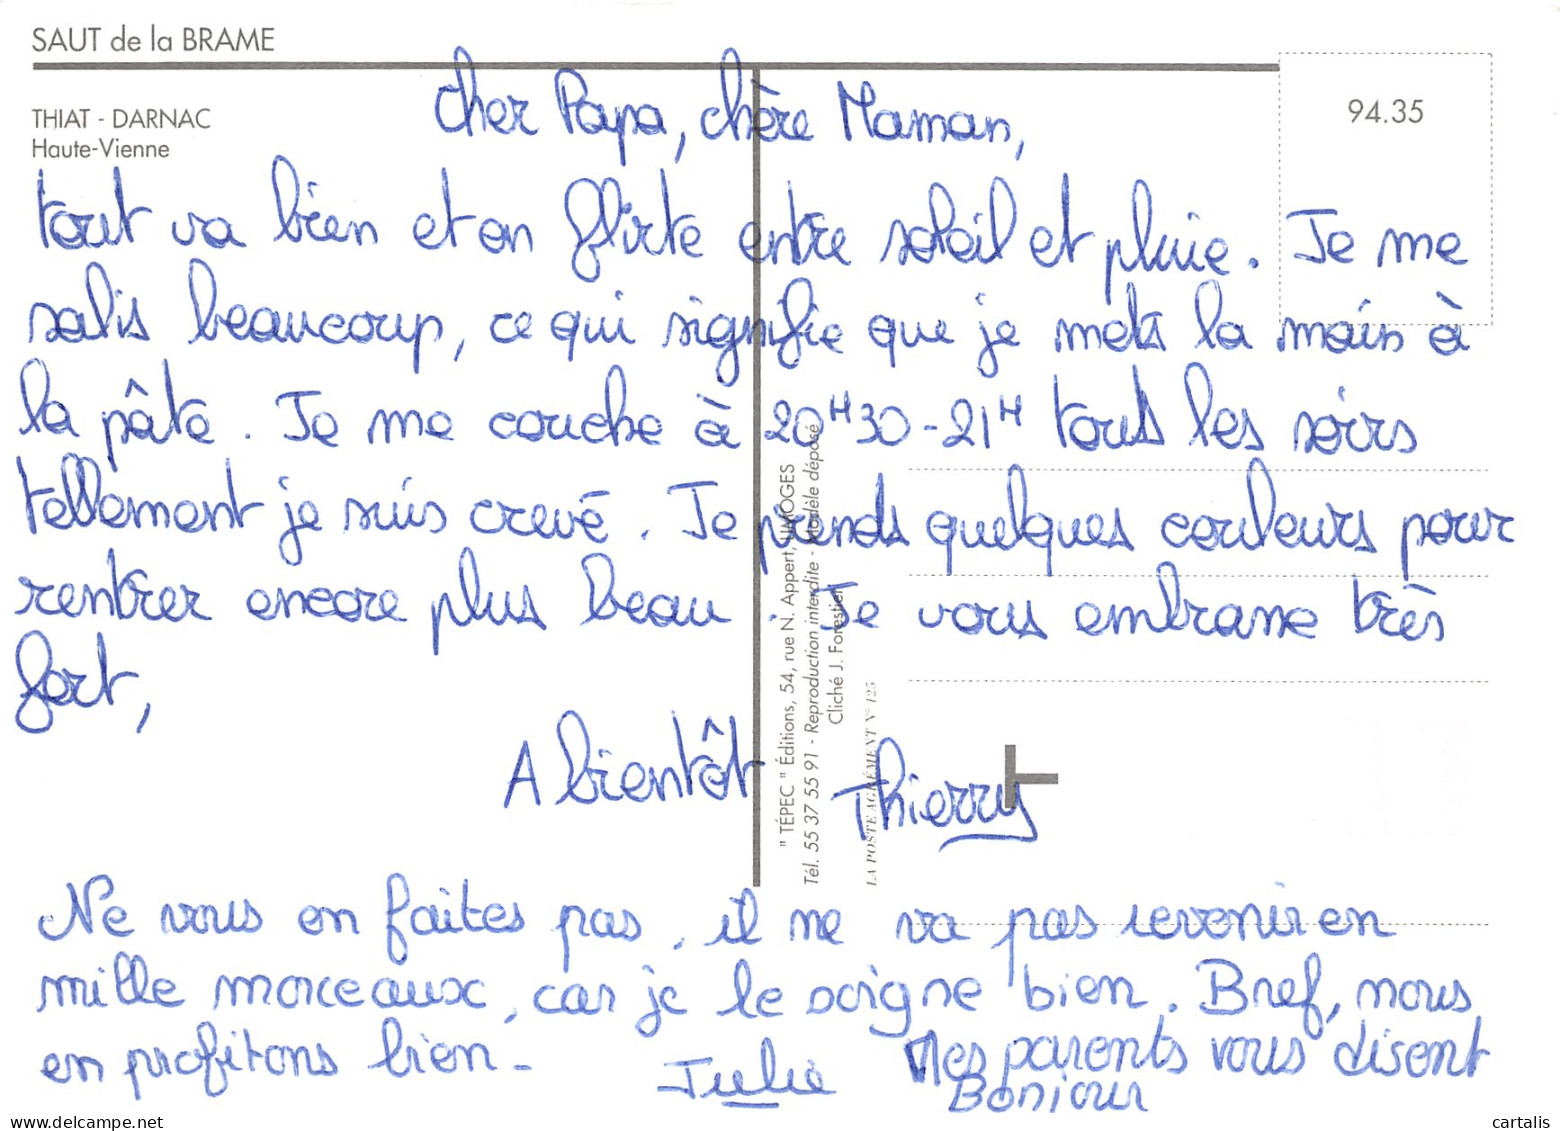 SAUT de la BRAME
THIAT - DARNAC
Haute-Vienne
94.35
Cher Papa, chère Maman,
tout va bien et on flirte entre soleil et pluie. Je me
salis beaucoup, ce qui signifie que je mets la main à
la pâte. Je me couche à 20H30-21H tous les soirs
tellement je suis crevé. Je prends quelques couleurs pour
rentrer encore plus beau. Je vous embrasse très
fort,
A bientôt Thierry
Ne vous en faites pas, il ne va pas revenir en
mille morceaux, car je le soigne bien. Bref, nous
en profitons bien -
Julie
Mes parents vous disent
Bonjour
" TÉPEC " Éditions, 54, rue N. Appert, LIMOGES
Tél. 55 37 55 91 - Reproduction interdite - Modèle déposé
Cliché J. Forestier
LA POSTE AGRÉMENT N° 125
www.delcampe.net
cartalis